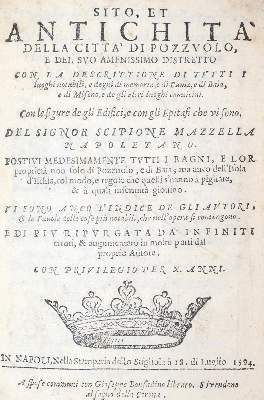 SITO, ET
ANTICHITA
DELLA CITTA' DI POZZVOLO,
E DEL SVO AMENISSIMO DISTRETTO
CON LA DESCRITTIONE DI TVTTI I
luoghi notabili, e degni di memoria, e di Cuma, e di Baia,
e di Miseno, e de gli altri luoghi conuicini.
Con le figure de gli Edificj, e con gli Epitafi che vi sono,
DEL SIGNOR SCIPIONE MAZZELLA
NAPOLETANO.
POSTIVI MEDESIMAMENTE TVTTI I BAGNI, E LOR
proprietà non solo di Pozzuolo, e di Baia, ma anco dell'Isola
d'Ischia, col modo, e regole che quelli s'hanno à pigliare,
& à quali infermità giouino.
VI SONO ANCO L'INDICE DE GLI AVTORI,
& la Tauola delle cose più notabili, che nell'opera si contengono.
E DI PIV RIPVRGATA DA INFINITI
errori, & augumentato in molte parti dal
proprio Autore.
CON PRIVILEGIO PER X. ANNI.
IN NAPOLI, Nella Stamparia dello Stigliola à 18. di Luglio 1594.
A spese communi con Gioseppe Bonfadino libraro. Si vendono
al segno della Corona.